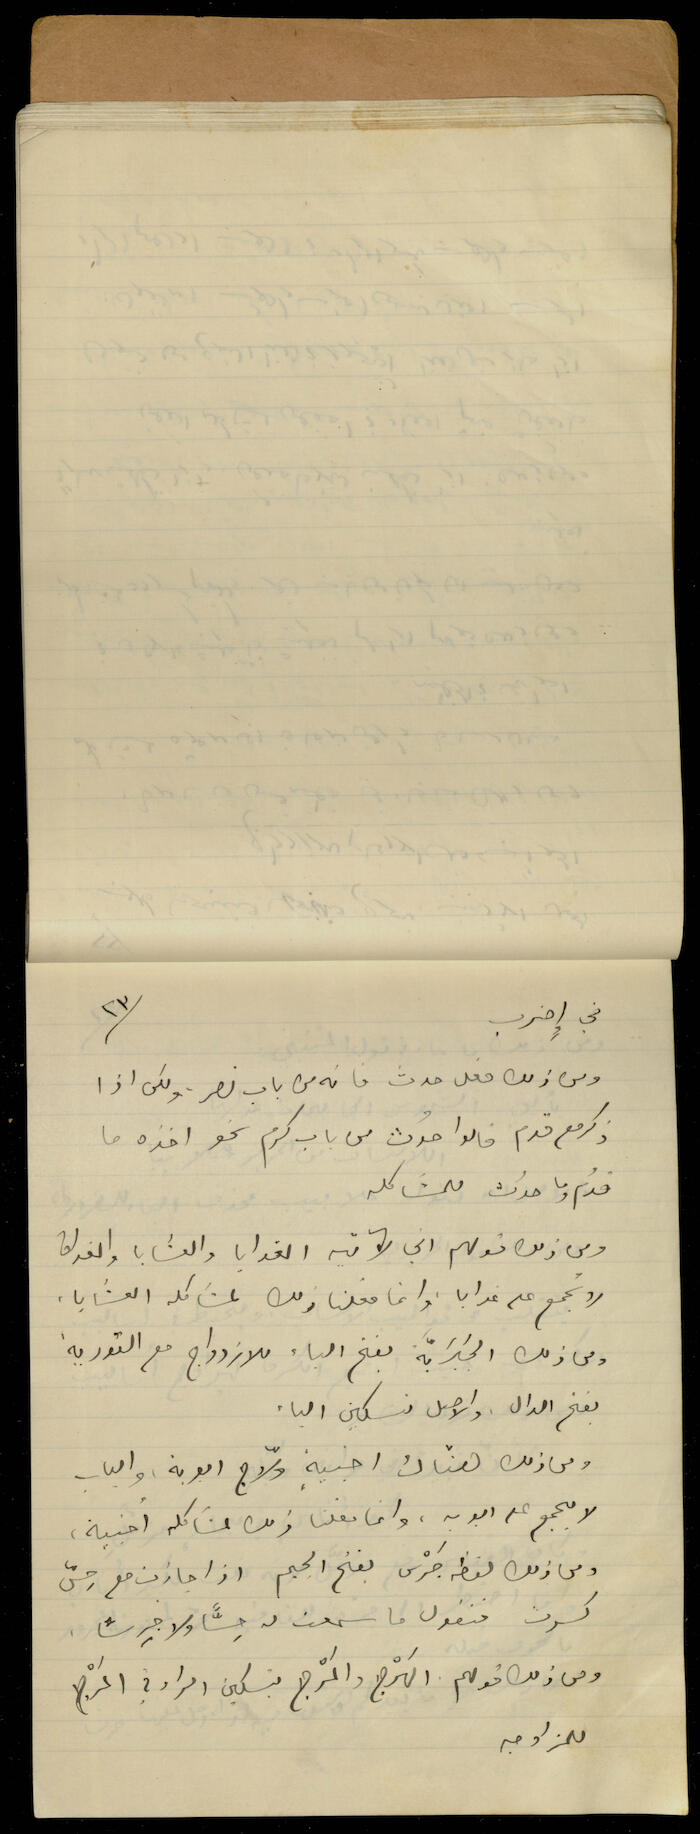 في إِضرب
٢٣/
ومن ذلك فعل حدث فانه من باب نصر، ولكن اذا
ذكر مع قدم قالوا حدُث من باب كرم نحو اخذه ما
قدُم وما حدُث للمشاكله
ومن ذلك قولهم اني لآتيه الغدايا والعشايا والغداة
لا تُجمع على غدايا، وانما فعلنا ذلك لمشاكلة العشايا،
ومن ذلك الجَبَرَيّة بفتح الباء للازدواج مع القدرية
بفتح الدال، والاصل تسكين الباء
ومن ذلك هتّاك اخبيةٍ ولّاج ابوبة، والباب
لا يجمع على ابوبه، وانما فعلنا ذلك لمشاكلة أخبية،
ومن ذلك لفظه جَرْس بفتح الجيم اذا جازت مع حِسّ
كسرت فنقول ما سمعت له حِسًّا ولا جِرسًا،
ومن ذلك قولهم الهَرْج والمَرْج بتسكين الراء في المَرْج
للمزاوجه